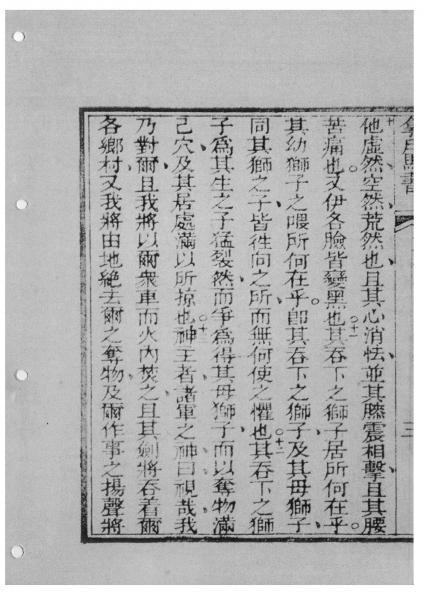 三
十他虛然空然荒然也且其心消怯並其膝震相擊且其腰
苦痛也。又伊各臉皆變黑也。十一其吞下之獅子居所何在乎。
其幼獅子之喂所何在乎。卽其吞下之獅子及其母獅子
同其獅之子皆徃向之所而無何使之懼也。十二其吞下之獅
子為其生之子猛裂然而爭為得其母獅子而以奪物滿
己穴及其居處滿以所掠也。十三神王者諸軍之神曰視哉我
乃對爾且我將以爾衆車而火內焚之且其劍將吞着爾
各鄉村又我將由地絕去爾之奪物及爾作事之揚聲將